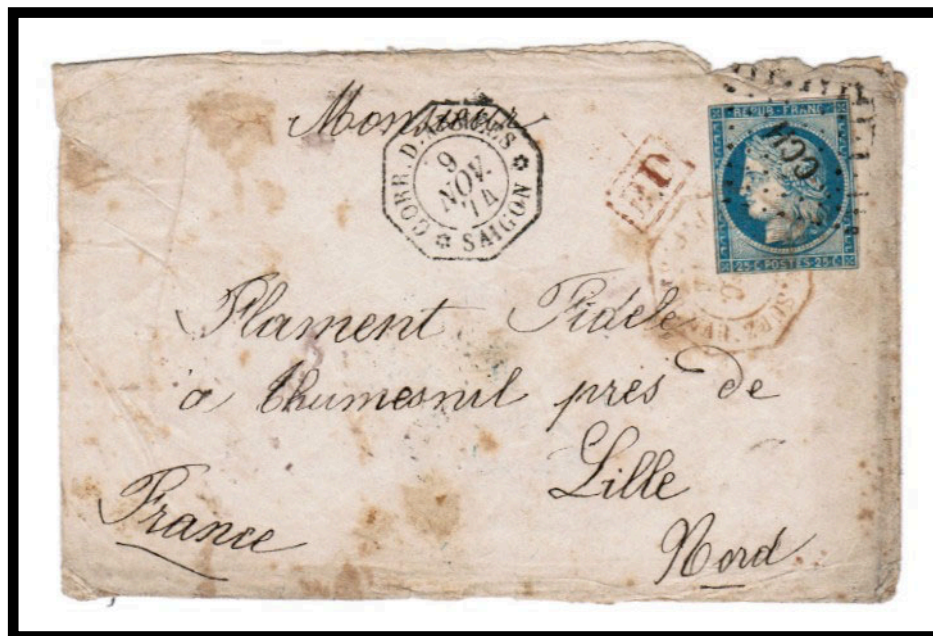 Monsieur
CORR. D. ARMÉES
9
NOV.
74
SAIGON
PD
REPUB. FRANC.
CCH
25 C POSTES 25 C
Flament Fidèle
à Thumesnil près de
Lille
France
Nord